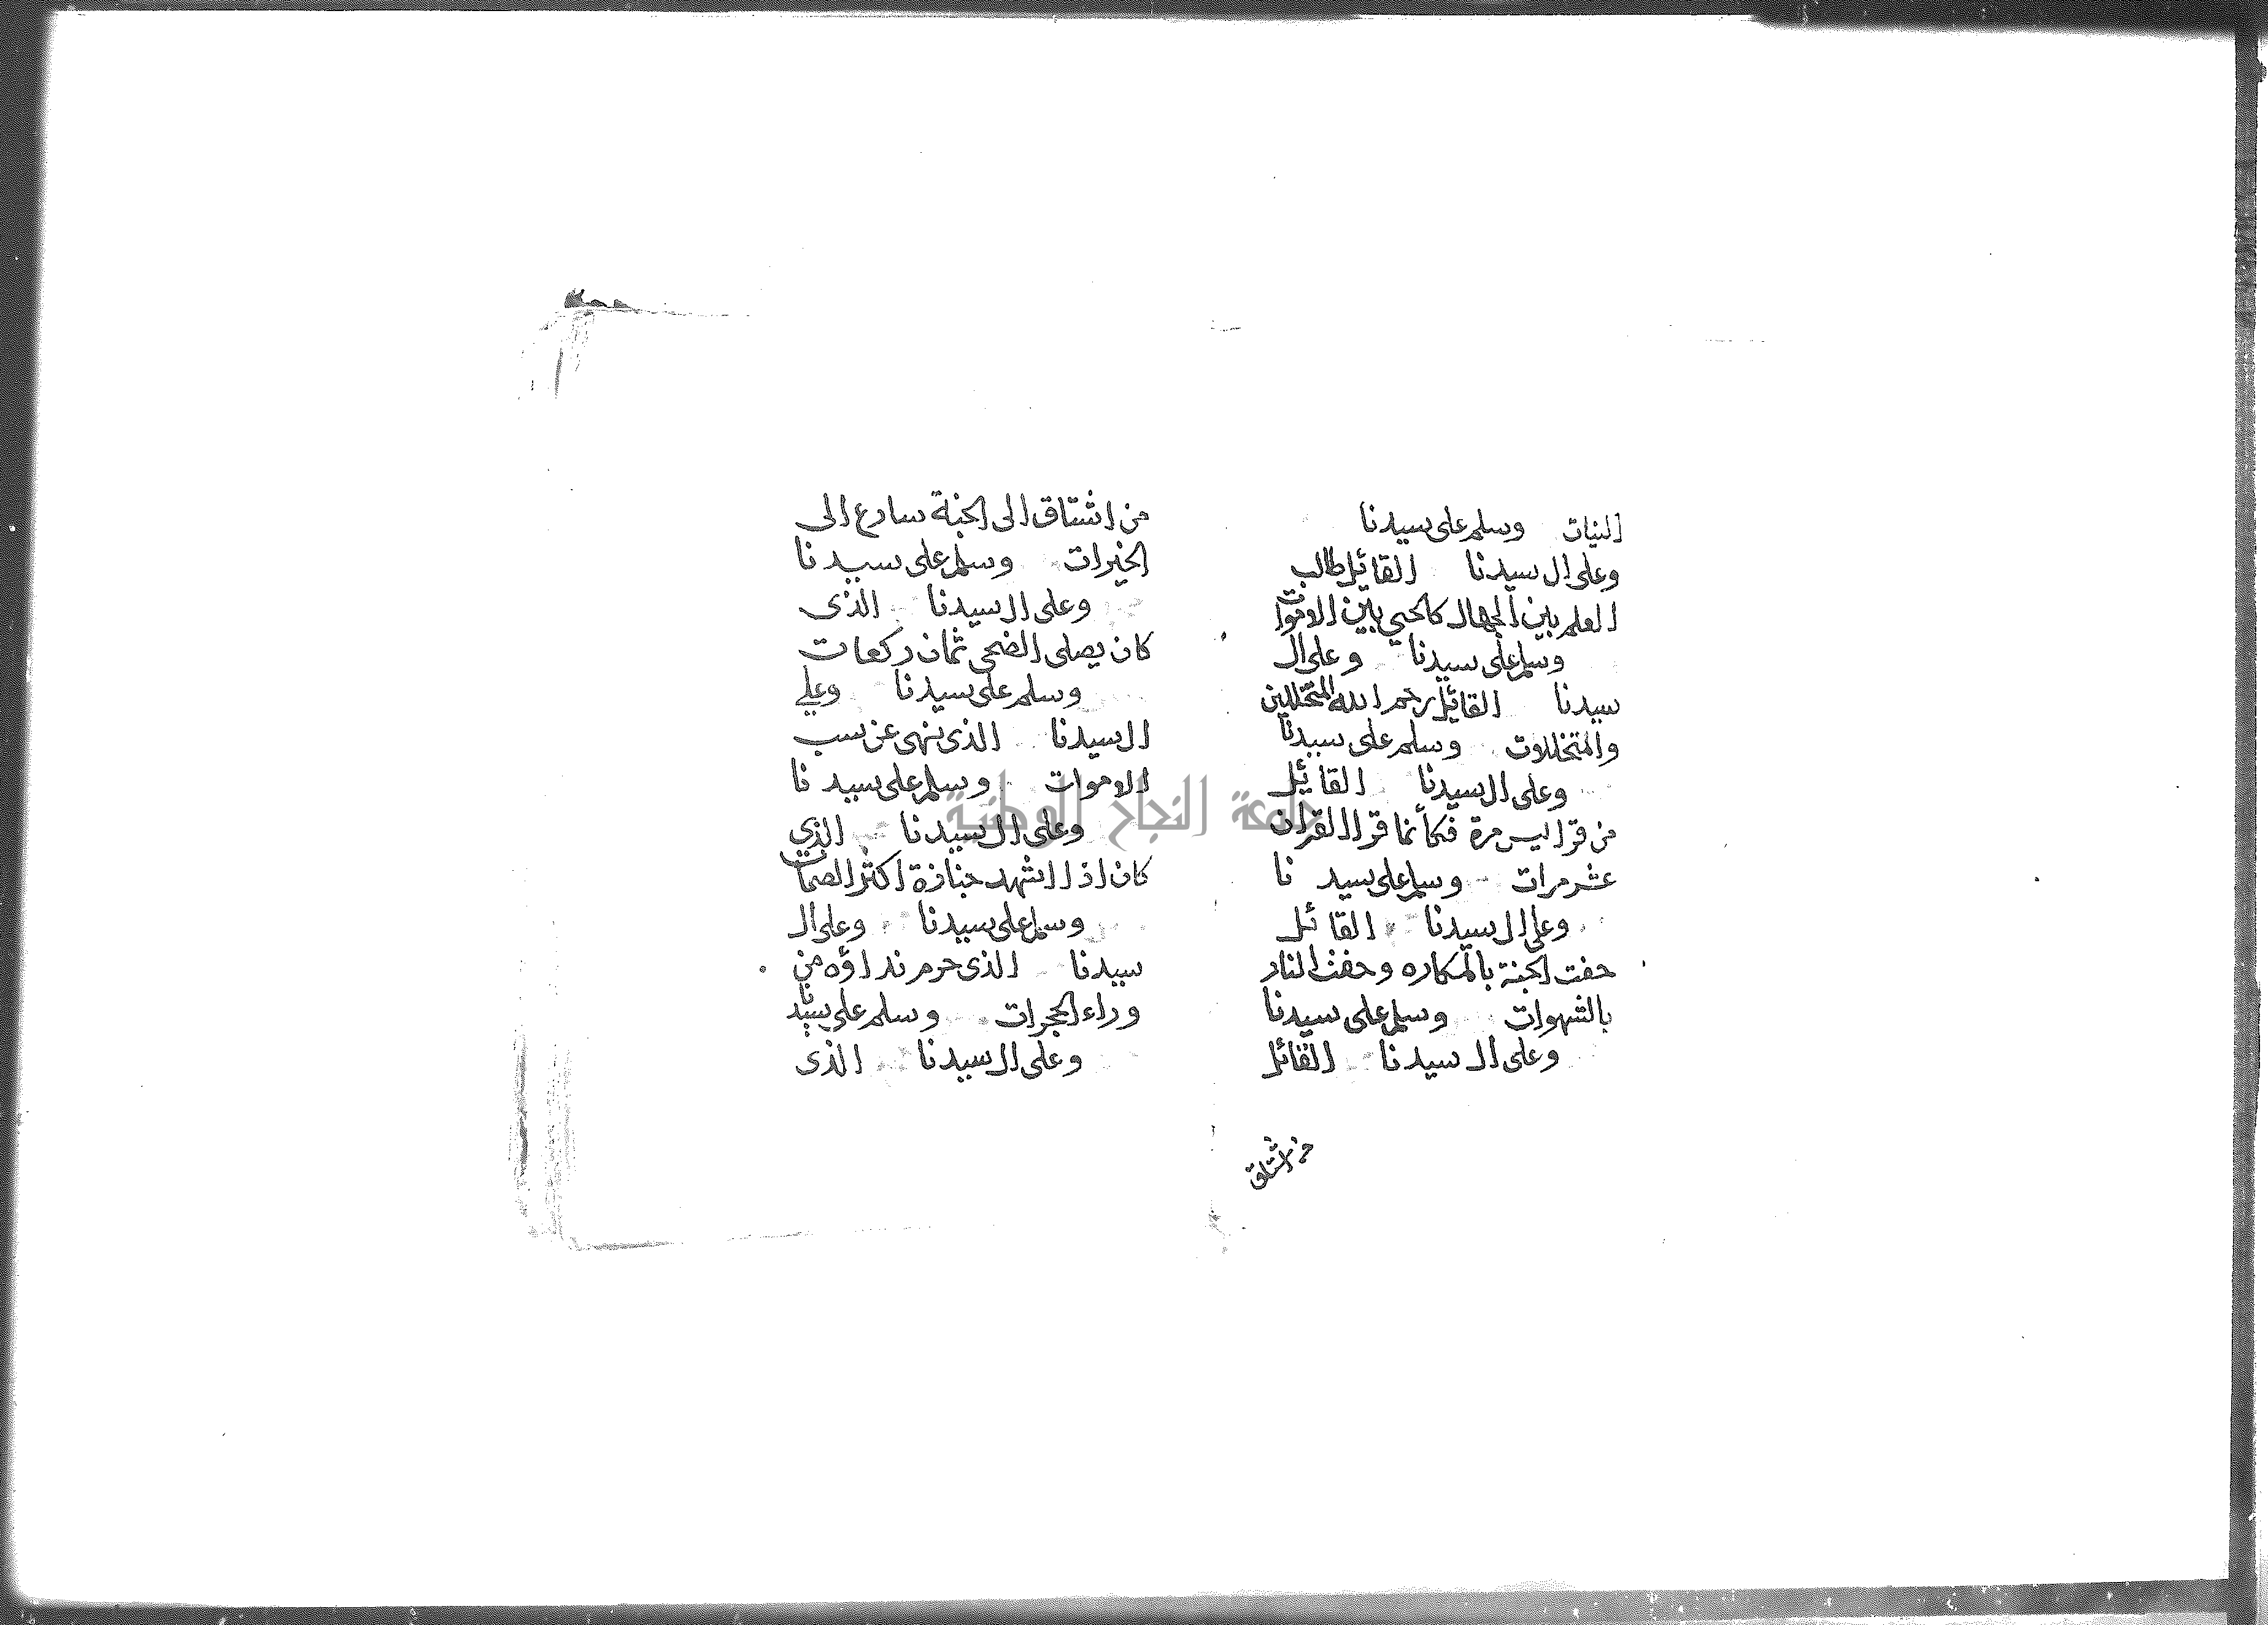 النيات وسلم على سيدنا
وعلى ال سيدنا القائل طالب
العلم بين الجهال كالحي بين الاموات
وسلم على سيدنا وعلى ال
سيدنا القائل رحم الله المتخللين
والمتخللات وسلم على سيدنا
وعلى ال سيدنا القائل
من قرا يس مرة فكأنما قرا القران
عشر مرات وسلم على سيدنا
وعلى ال سيدنا القائل
حفت الجنة بالمكاره وحفت النار
بالشهوات وسلم على سيدنا
وعلى ال سيدنا القائل
من اشتاق
من اشتاق الى الجنة سارع الى
الخيرات وسلم على سيدنا
وعلى ال سيدنا الذى
كان يصلى الضحى ثمان ركعات
وسلم على سيدنا وعلي
ال سيدنا الذى نهى عن سب
الاموات وسلم على سيدنا
وعلى ال سيدنا الذي
كان اذا اشهد جنازة اكثر الصمات
وسلم على سيدنا وعلى ال
سيدنا الذى حرم نداؤه من
وراء الحجرات وسلم على سيدنا
وعلى ال سيدنا الذى
جامعة النجاح الوطنية